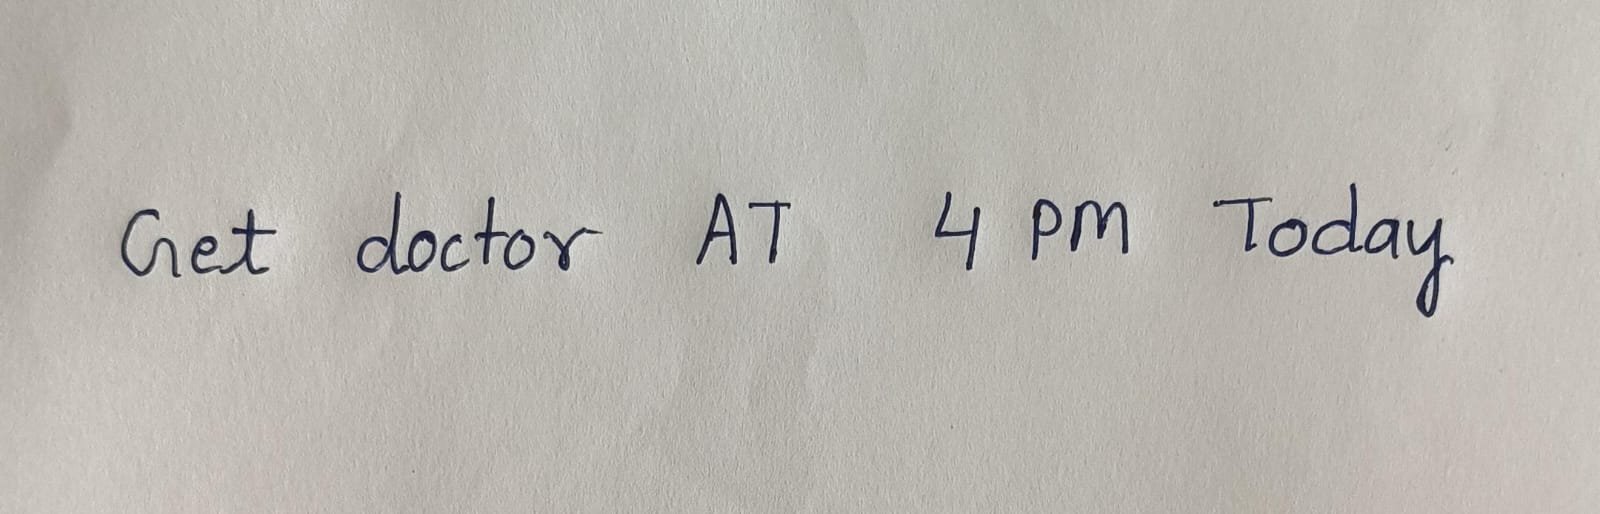 Get doctor AT 4 PM Today